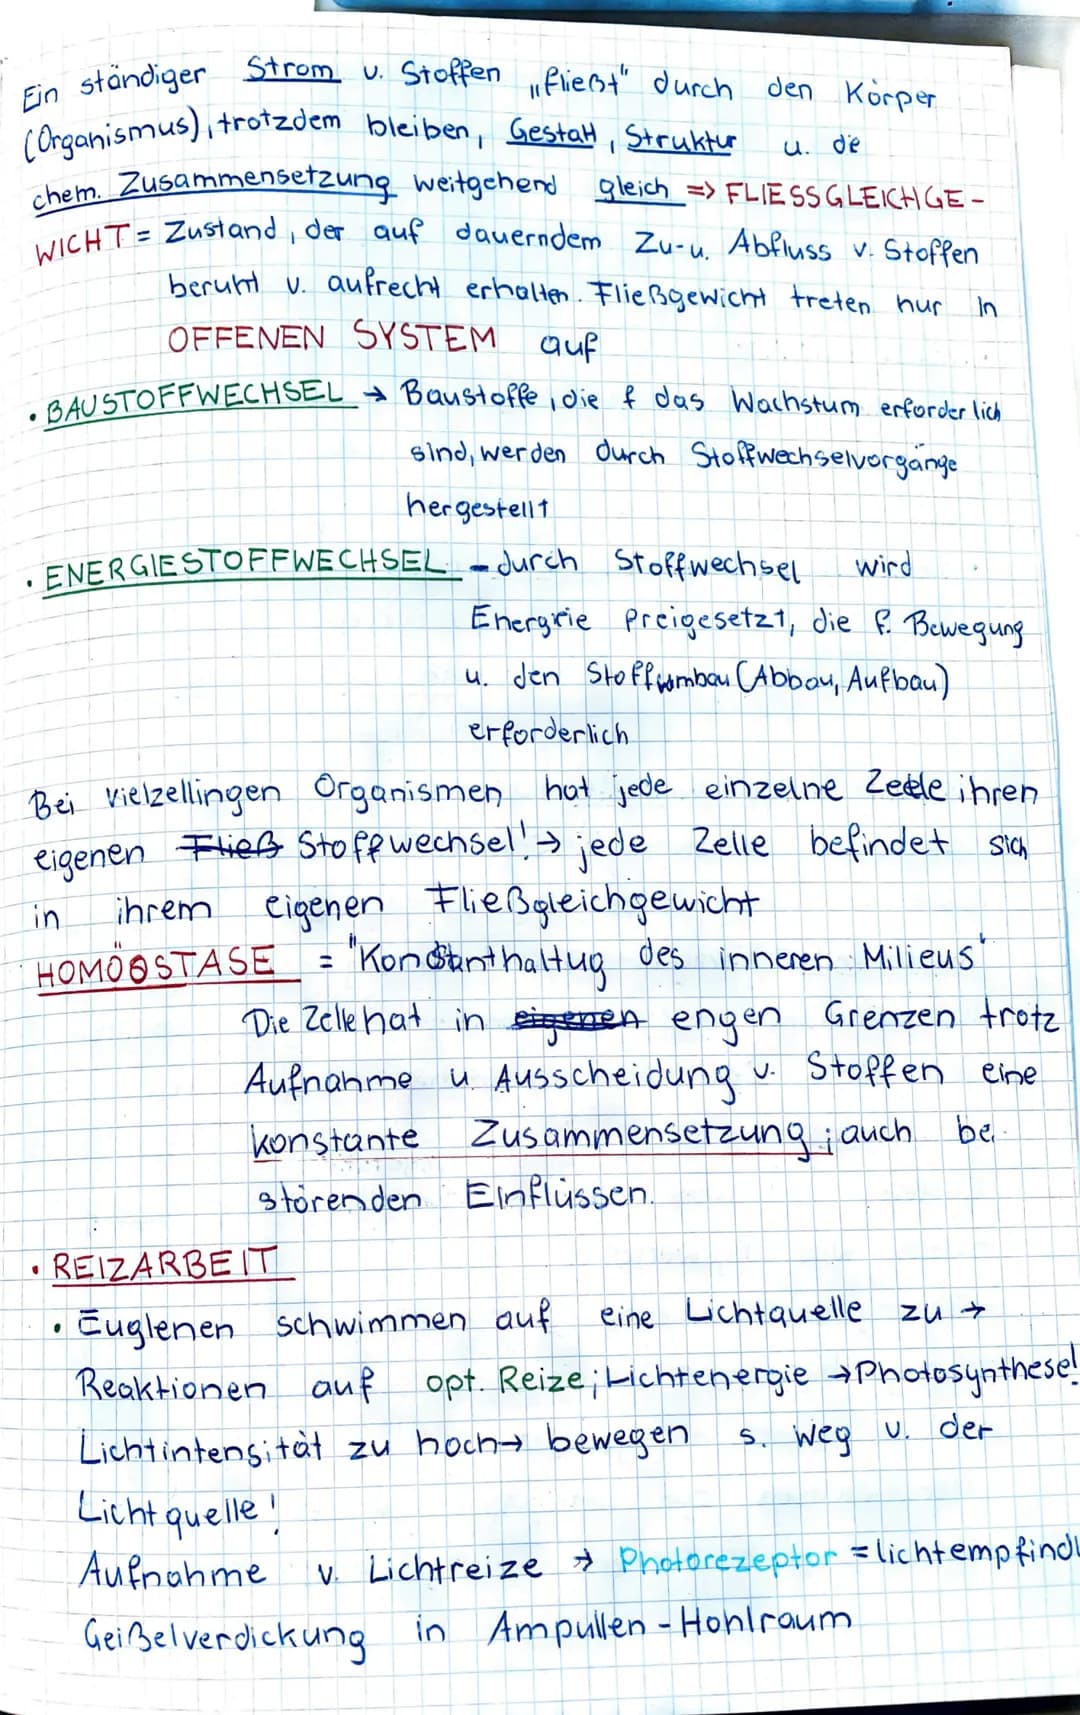 Ein ständiger Strom v. Stoffen „fließt" durch den Körper
(Organismus), trotzdem bleiben, Gestalt, Struktur u. die
chem. Zusammensetzung weitgehend gleich => FLIESSGLEICHGE-
WICHT = Zustand, der auf dauerndem Zu-u. Abfluss v. Stoffen
beruht v. aufrecht erhalten. Fließgewicht treten nur in
OFFENEN SYSTEM auf
• BAUSTOFFWECHSEL → Baustoffe, die f das Wachstum erforderlich
sind, werden durch Stoffwechselvorgänge
hergestellt
• ENERGIESTOFFWECHSEL - durch Stoffwechsel wird
Energie freigesetzt, die f. Bewegung
u. den Stoffumbau (Abbau, Aufbau)
erforderlich
Bei vielzellingen Organismen hat jede einzelne Zelle ihren
eigenen Fließ Stoffwechsel! → jede Zelle befindet sich
in ihrem eigenen Fließgleichgewicht
HOMÖOSTASE = "Konstanthaltug des inneren Milieus"
Die Zelle hat in eigenen engen Grenzen trotz
Aufnahme u. Ausscheidung v. Stoffen eine
konstante Zusammensetzung; auch bei
störenden Einflüssen.
• REIZARBEIT
• Euglenen schwimmen auf eine Lichtquelle zu →
Reaktionen auf opt. Reize; Lichtenergie → Photosynthese!
Lichtintensität zu hoch → bewegen s. weg v. der
Lichtquelle!
Aufnahme v. Lichtreize → Photorezeptor = lichtempfindl
Geißelverdickung in Ampullen - Hohlraum